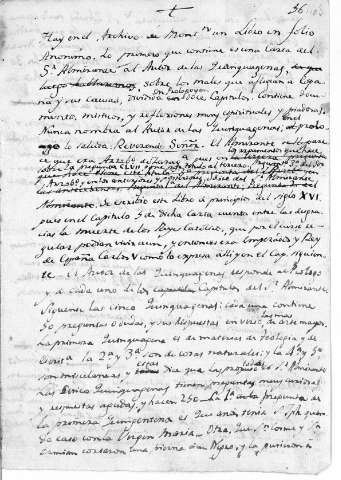 +
36
Hay en el Archivo de Mons.te un Libro en folio
Anonimo. Lo primero que contiene es una carta del
S.r Almirante al Autor de las Quinquagenas,
sobre los males que afligian a Espa
ña y sus causas, dividida en doce Capitulos. Contiene docu
mentos, misticos, y reflexiones muy espirituales y piadosas.
Nunca nombra al Autor de las Quinquagenas,
lo saluda: Reverendo Señor. El Almirante
Almirante. Se escribió este Libro á principios del siglo XVI.
pues en el Capitulo 5 de dicha Carta cuenta entre las desgra
cias la muerte de los Reyes Catolicos, que por el curso re
gular podian vivir aun, y entonces era Emperador y Rey
de España Carlos V como lo expresa alli y en el Cap. siguien
te. El Autor de las Quinquagenas responde al Prologo
y á cada uno de los Capitulos del S.r Almirante.
Siguense las cinco Quinquagenas: cada una contiene
50 preguntas ó dudas, y sus respuestas en verso, de arte mayor.
La primera Quinquagena es de materias de Teologia y de
la 2.a y 3.a son de cosas naturales; y la 4.a y 5.a
son miscelaneas, y que las propuso el S.r Almirante
Las cinco Quinquagenas tienen preguntas muy curiosas
y respuestas agudas, y hacen 250. La 1.a pregunta de
la primera Quinquagena es que años tenia S. Jph quan
do casó con la Virgen Maria. Otra, que S. Cosme y S.
Damian cortaron una pierna á un Negro, y la pusieron á